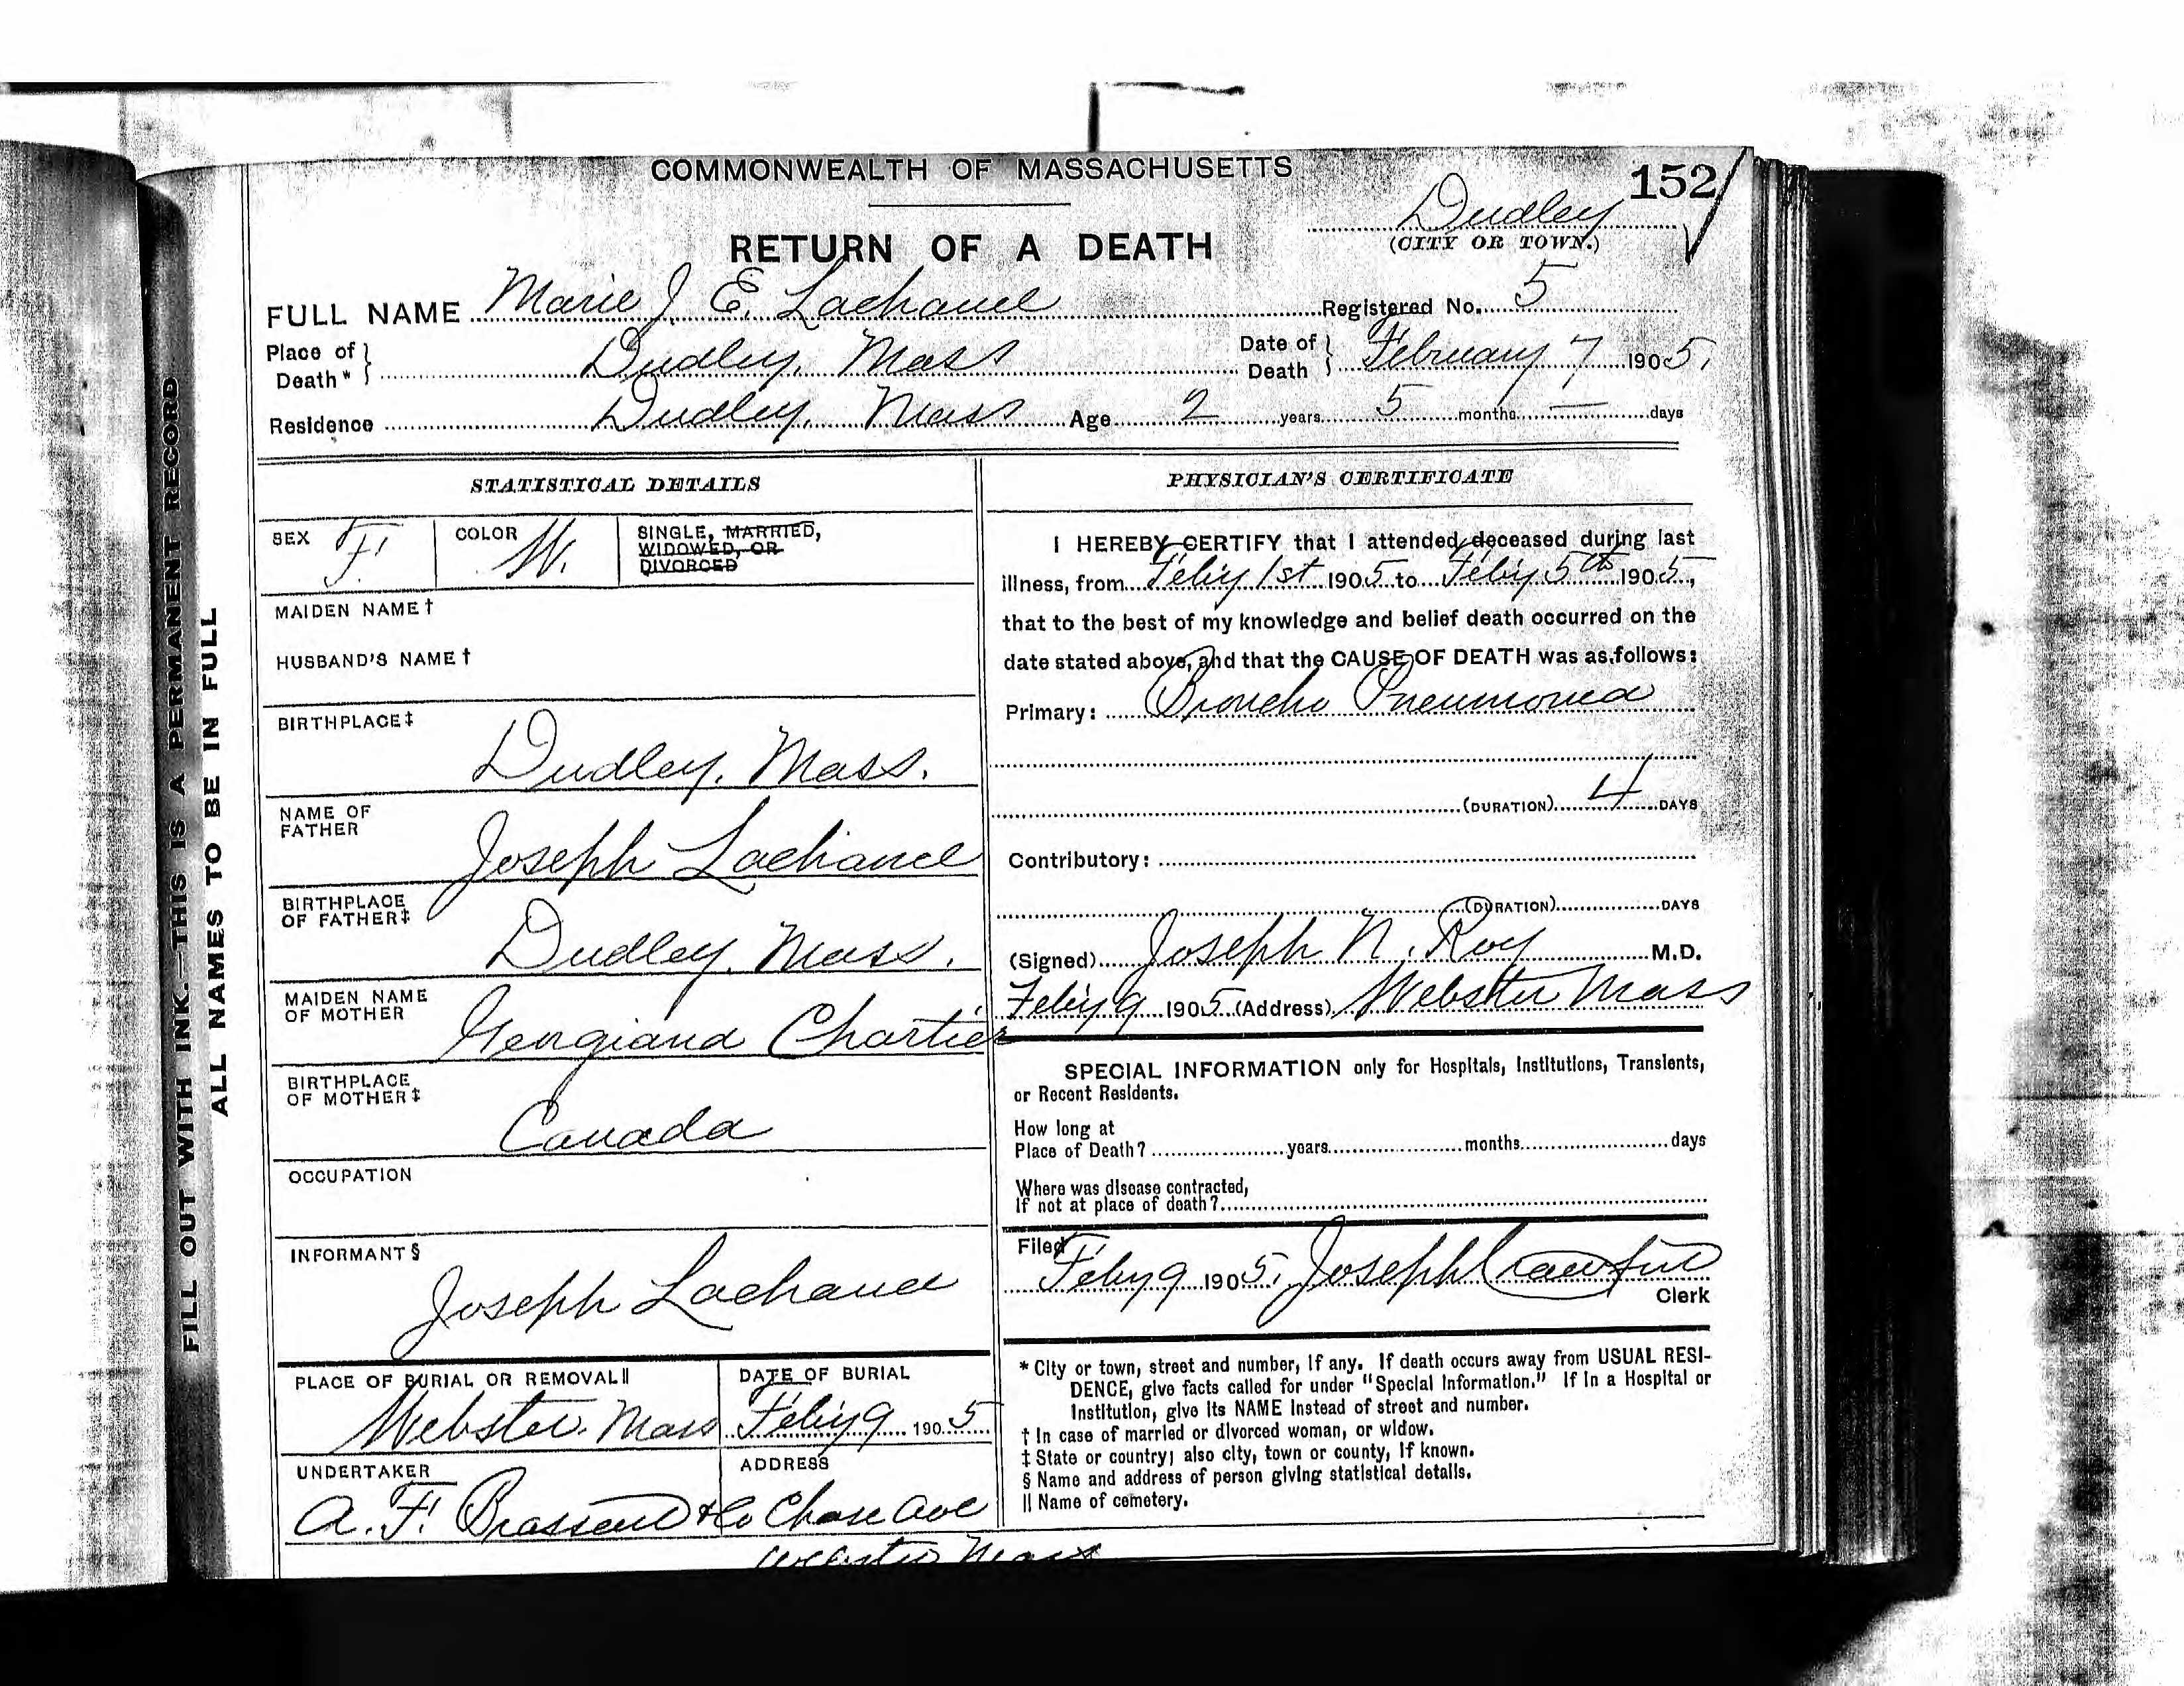 COMMONWEALTH OF MASSACHUSETTS
152
Dudley
(CITY OR TOWN.)
RETURN OF A DEATH
FULL NAME Marie J. E. Lachance Registered No. 5
Place of Death* Dudley, Mass Date of Death February 7 1905.
Residence Dudley, Mass Age 2 years 5 months — days
STATISTICAL DETAILS
SEX F. COLOR W. SINGLE, MARRIED,
WIDOWED, OR
DIVORCED
MAIDEN NAME†
HUSBAND'S NAME†
BIRTHPLACE‡
Dudley, Mass.
NAME OF
FATHER
Joseph Lachance
BIRTHPLACE
OF FATHER‡
Dudley, Mass.
MAIDEN NAME
OF MOTHER
Georgiana Chartier
BIRTHPLACE
OF MOTHER‡
Canada
OCCUPATION
INFORMANT§
Joseph Lachance
PLACE OF BURIAL OR REMOVAL||
Webster. Mass
DATE OF BURIAL
Feby 9 1905
UNDERTAKER
A. F. Brassard & Co
ADDRESS
Chase Ave
Webster Mass
PHYSICIAN'S CERTIFICATE
I HEREBY CERTIFY that I attended deceased during last
illness, from Feby 1st 1905 to Feby 5th 1905,
that to the best of my knowledge and belief death occurred on the
date stated above, and that the CAUSE OF DEATH was as follows:
Primary: Broncho Pneumonia
(DURATION) 4 DAYS
Contributory:
(DURATION) DAYS
(Signed) Joseph N. Roy M.D.
Feby 9 1905 (Address) Webster Mass
SPECIAL INFORMATION only for Hospitals, Institutions, Transients,
or Recent Residents.
How long at
Place of Death? years months days
Where was disease contracted,
If not at place of death?
Filed
Feby 9 1905. Joseph
Clerk
* City or town, street and number, if any. If death occurs away from USUAL RESI-
DENCE, give facts called for under "Special Information." If in a Hospital or
Institution, give its NAME instead of street and number.
† In case of married or divorced woman, or widow.
‡ State or country; also city, town or county, if known.
§ Name and address of person giving statistical details.
|| Name of cemetery.
FILL OUT WITH INK.—THIS IS A PERMANENT RECORD
ALL NAMES TO BE IN FULL